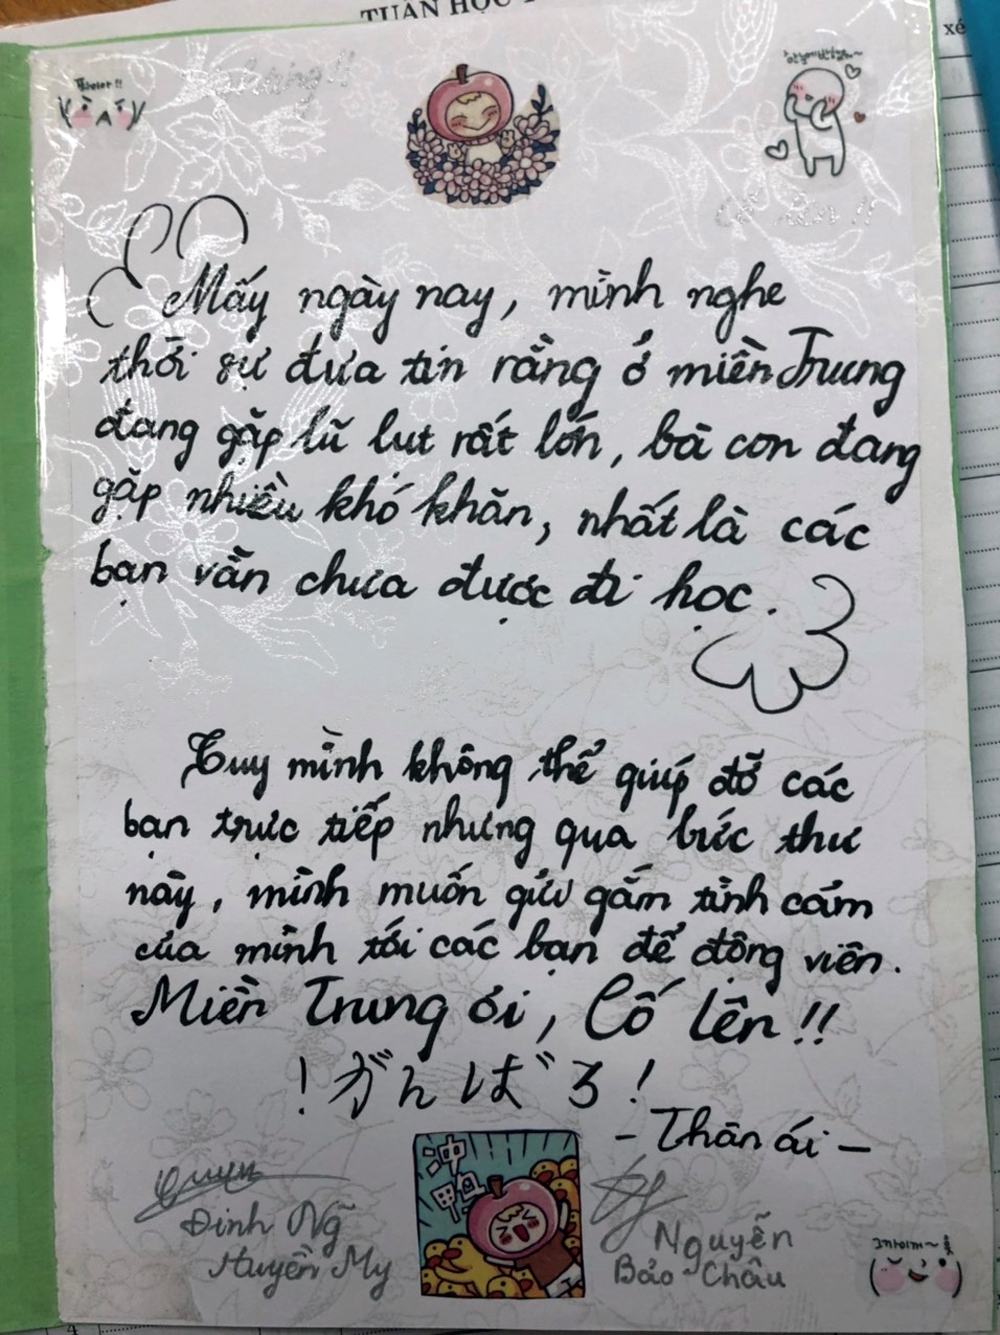 TUẦN HỌC
xé
Cố lên !!
Mấy ngày nay, mình nghe
thời sự đưa tin rằng ở miền Trung
đang gặp lũ lụt rất lớn, bà con đang
gặp nhiều khó khăn, nhất là các
bạn vẫn chưa được đi học.
Tuy mình không thể giúp đỡ các
bạn trực tiếp nhưng qua bức thư
này, mình muốn gửi gắm tình cảm
của mình tới các bạn để động viên.
Miền Trung ơi, Cố lên !!
! がんばろ !
- Thân ái -
冲鸭
Đinh Ng̃
Huyền My
Nguyễn
Bảo Châu
4